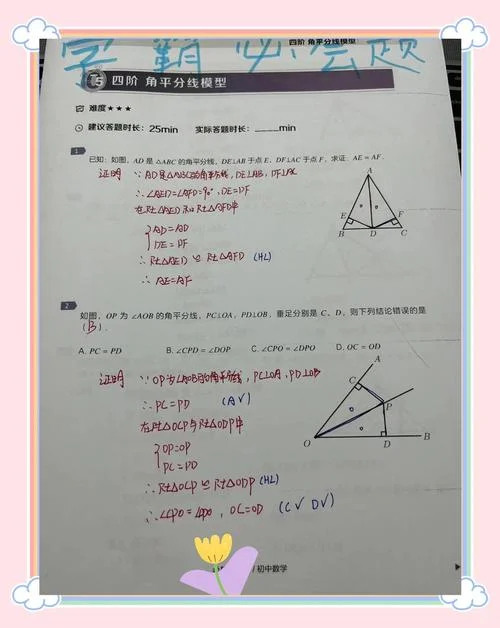 学霸必会题
四阶 角平分线模型
T5 四阶 角平分线模型
难度★★★
建议答题时长：25min 实际答题时长：____min
1
已知：如图，AD 是 △ABC 的角平分线，DE⊥AB 于点 E，DF⊥AC 于点 F，求证：AE = AF.
证明 ∵AD是△ABC的角平分线，DE⊥AB，DF⊥AC
∴∠AED=∠AFD=90°，DE=DF
在Rt△AED和Rt△AFD中
AD=AD
DE=DF
∴Rt△AED≌Rt△AFD (HL)
∴AE=AF
A
E
F
B
D
C
2
如图，OP 为 ∠AOB 的角平分线，PC⊥OA，PD⊥OB，垂足分别是 C、D，则下列结论错误的是
（B）.
A. PC = PD B. ∠CPD = ∠DOP C. ∠CPO = ∠DPO D. OC = OD
证明 ∵OP为∠AOB的角平分线，PC⊥OA，PD⊥OB
∴PC=PD (A√)
在Rt△OCP与Rt△ODP中
OP=OP
PC=PD
∴Rt△OCP≌Rt△ODP (HL)
∴∠CPO=∠DPO，OC=OD (C√ D√)
A
C
P
O
D
B
/ 初中数学